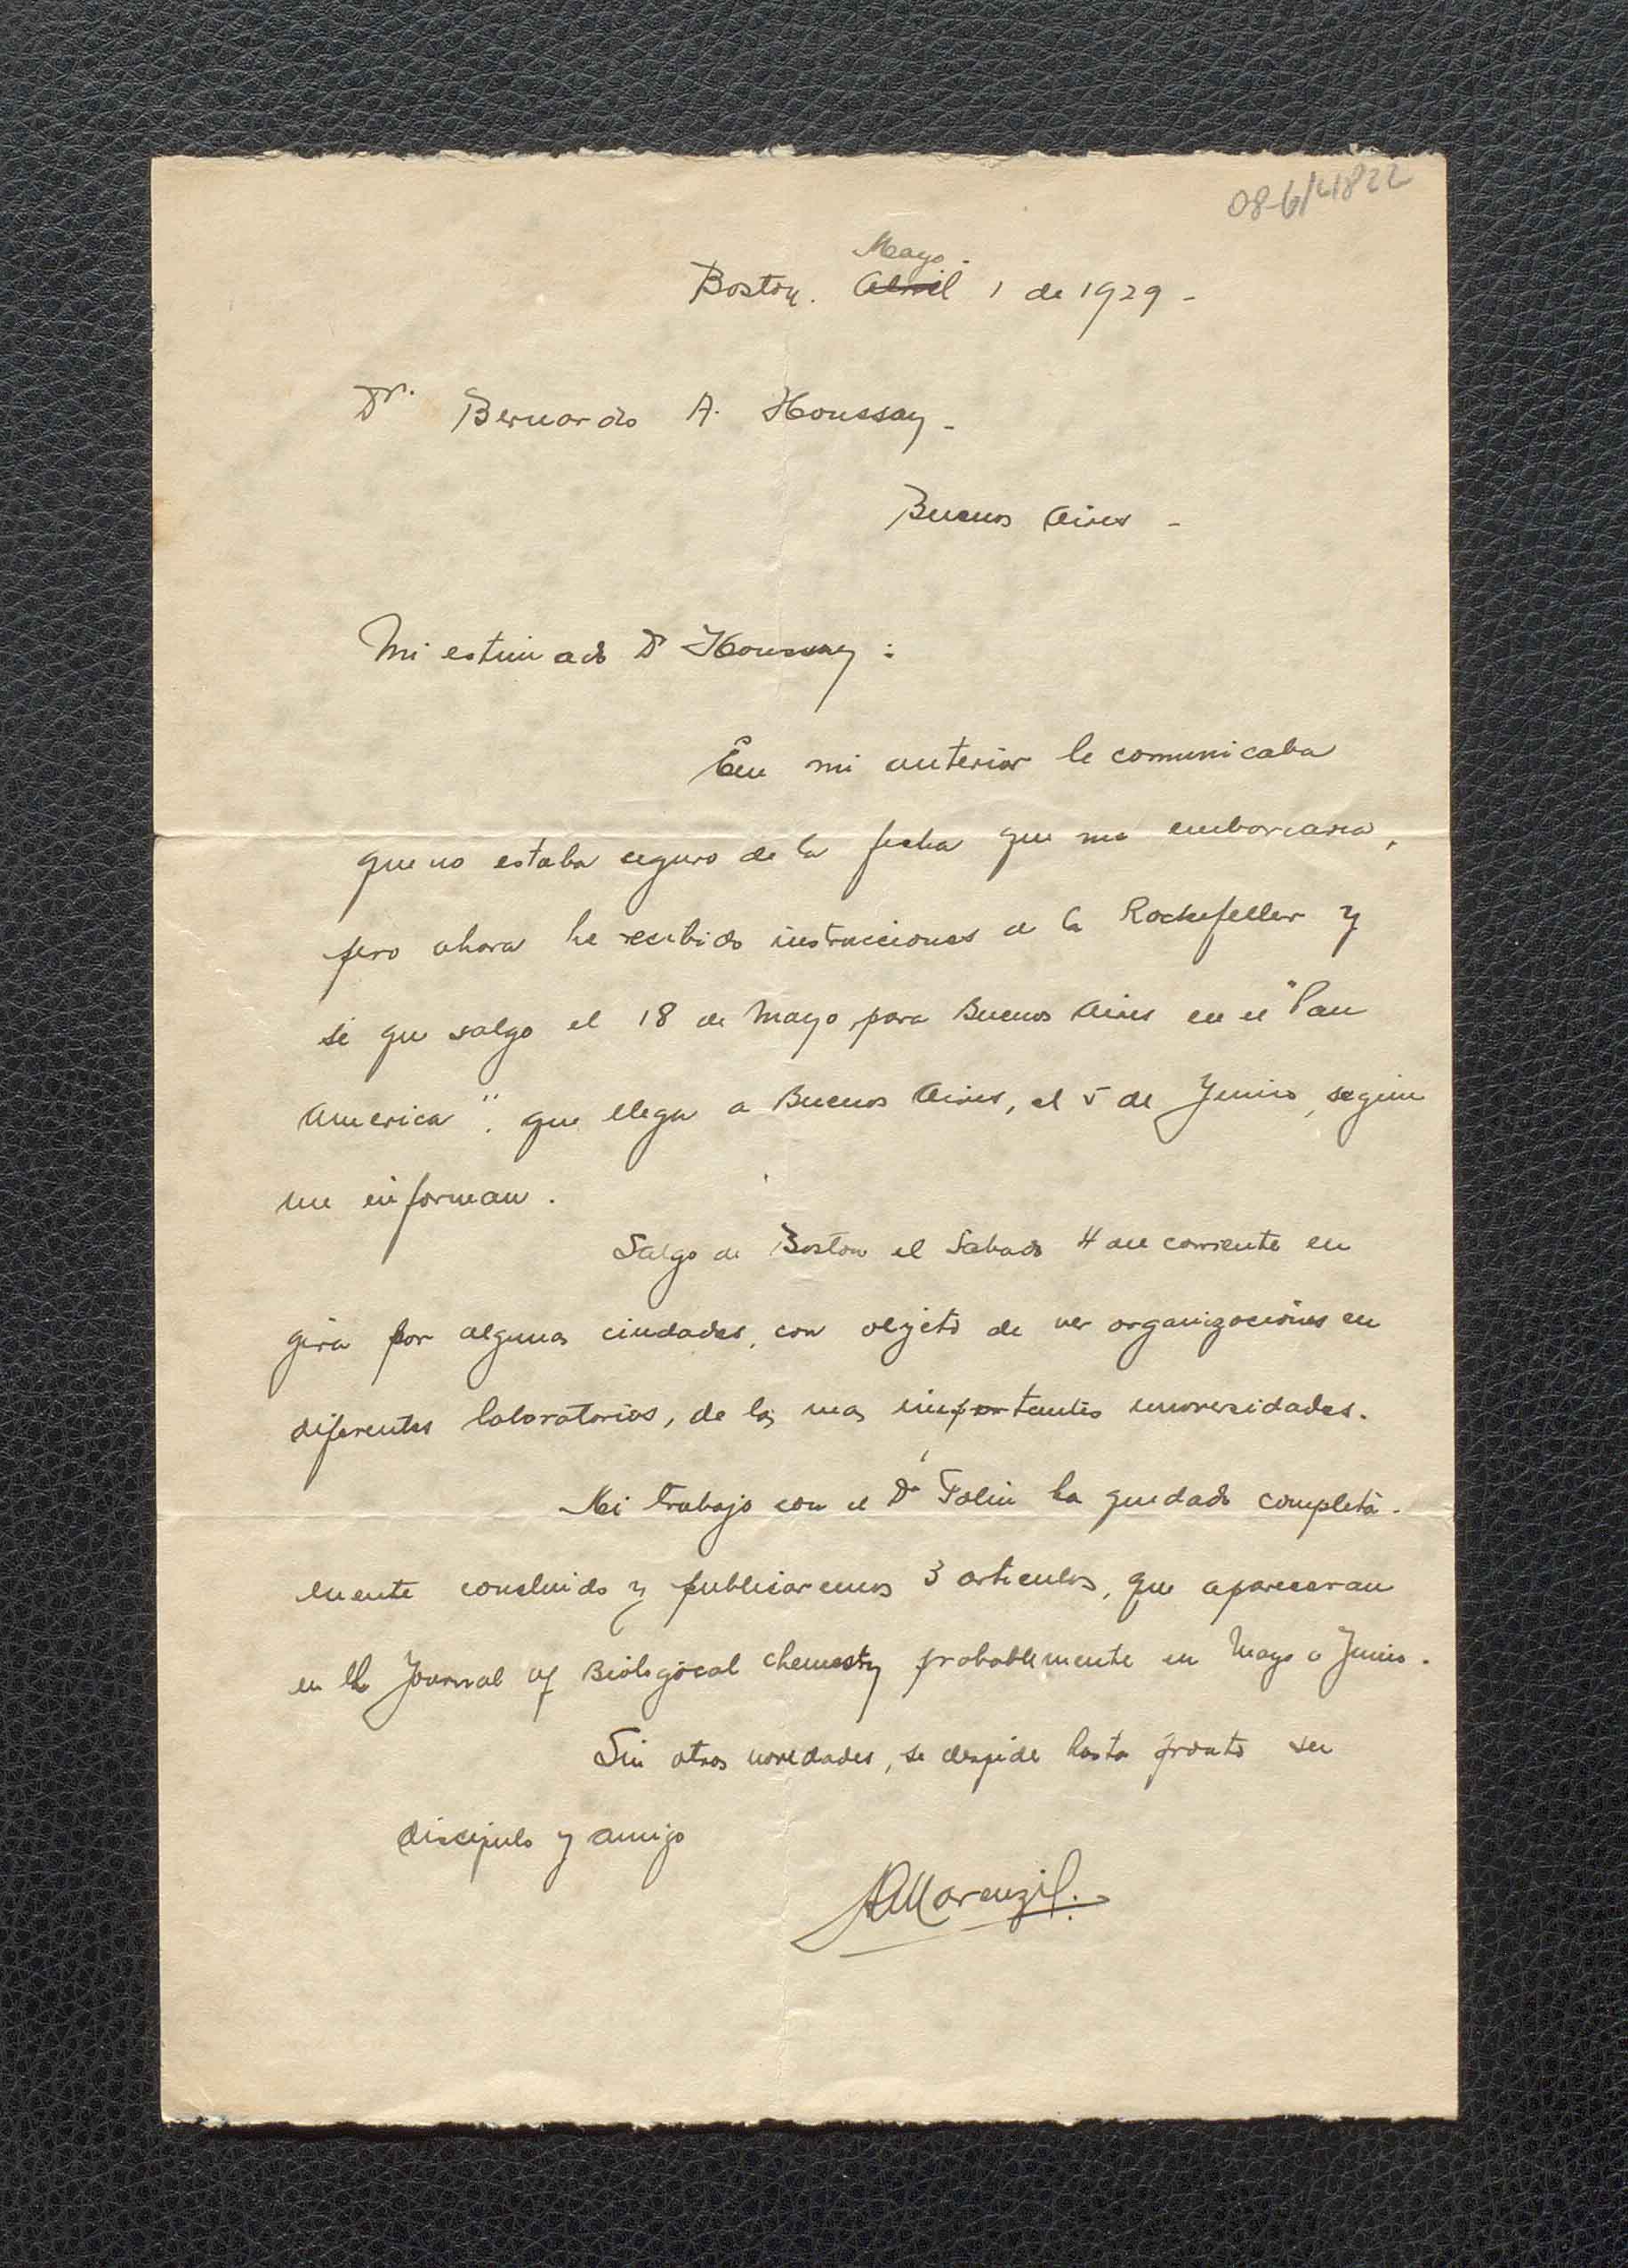 08-6/4822
Mayo.
Boston. Abril 1 de 1929-
Dr. Bernardo A. Houssay-
Buenos Aires-
Mi estimado Dr Houssay:
En mi anterior le comunicaba
que no estaba seguro de la fecha que me embarcaria,
pero ahora he recibido instrucciones de la Rockefeller y
sé que salgo el 18 de Mayo para Buenos Aires en el "Pan
America". que llega a Buenos Aires, el 5 de Junio, segun
me informan.
Salgo de Boston el Sabado 4 del corriente en
gira por algunas ciudades, con objeto de ver organizaciones en
diferentes laboratorios, de las mas importantes universidades.
Mi trabajo con el Dr Folin ha quedado completa-
mente concluido y publicaremos 3 articulos, que apareceran
en el Journal of Biological chemesty probablemente en Mayo o Junio.
Sin otras novedades, se despide hasta pronto su
discipulo y amigo
AD Marenzi